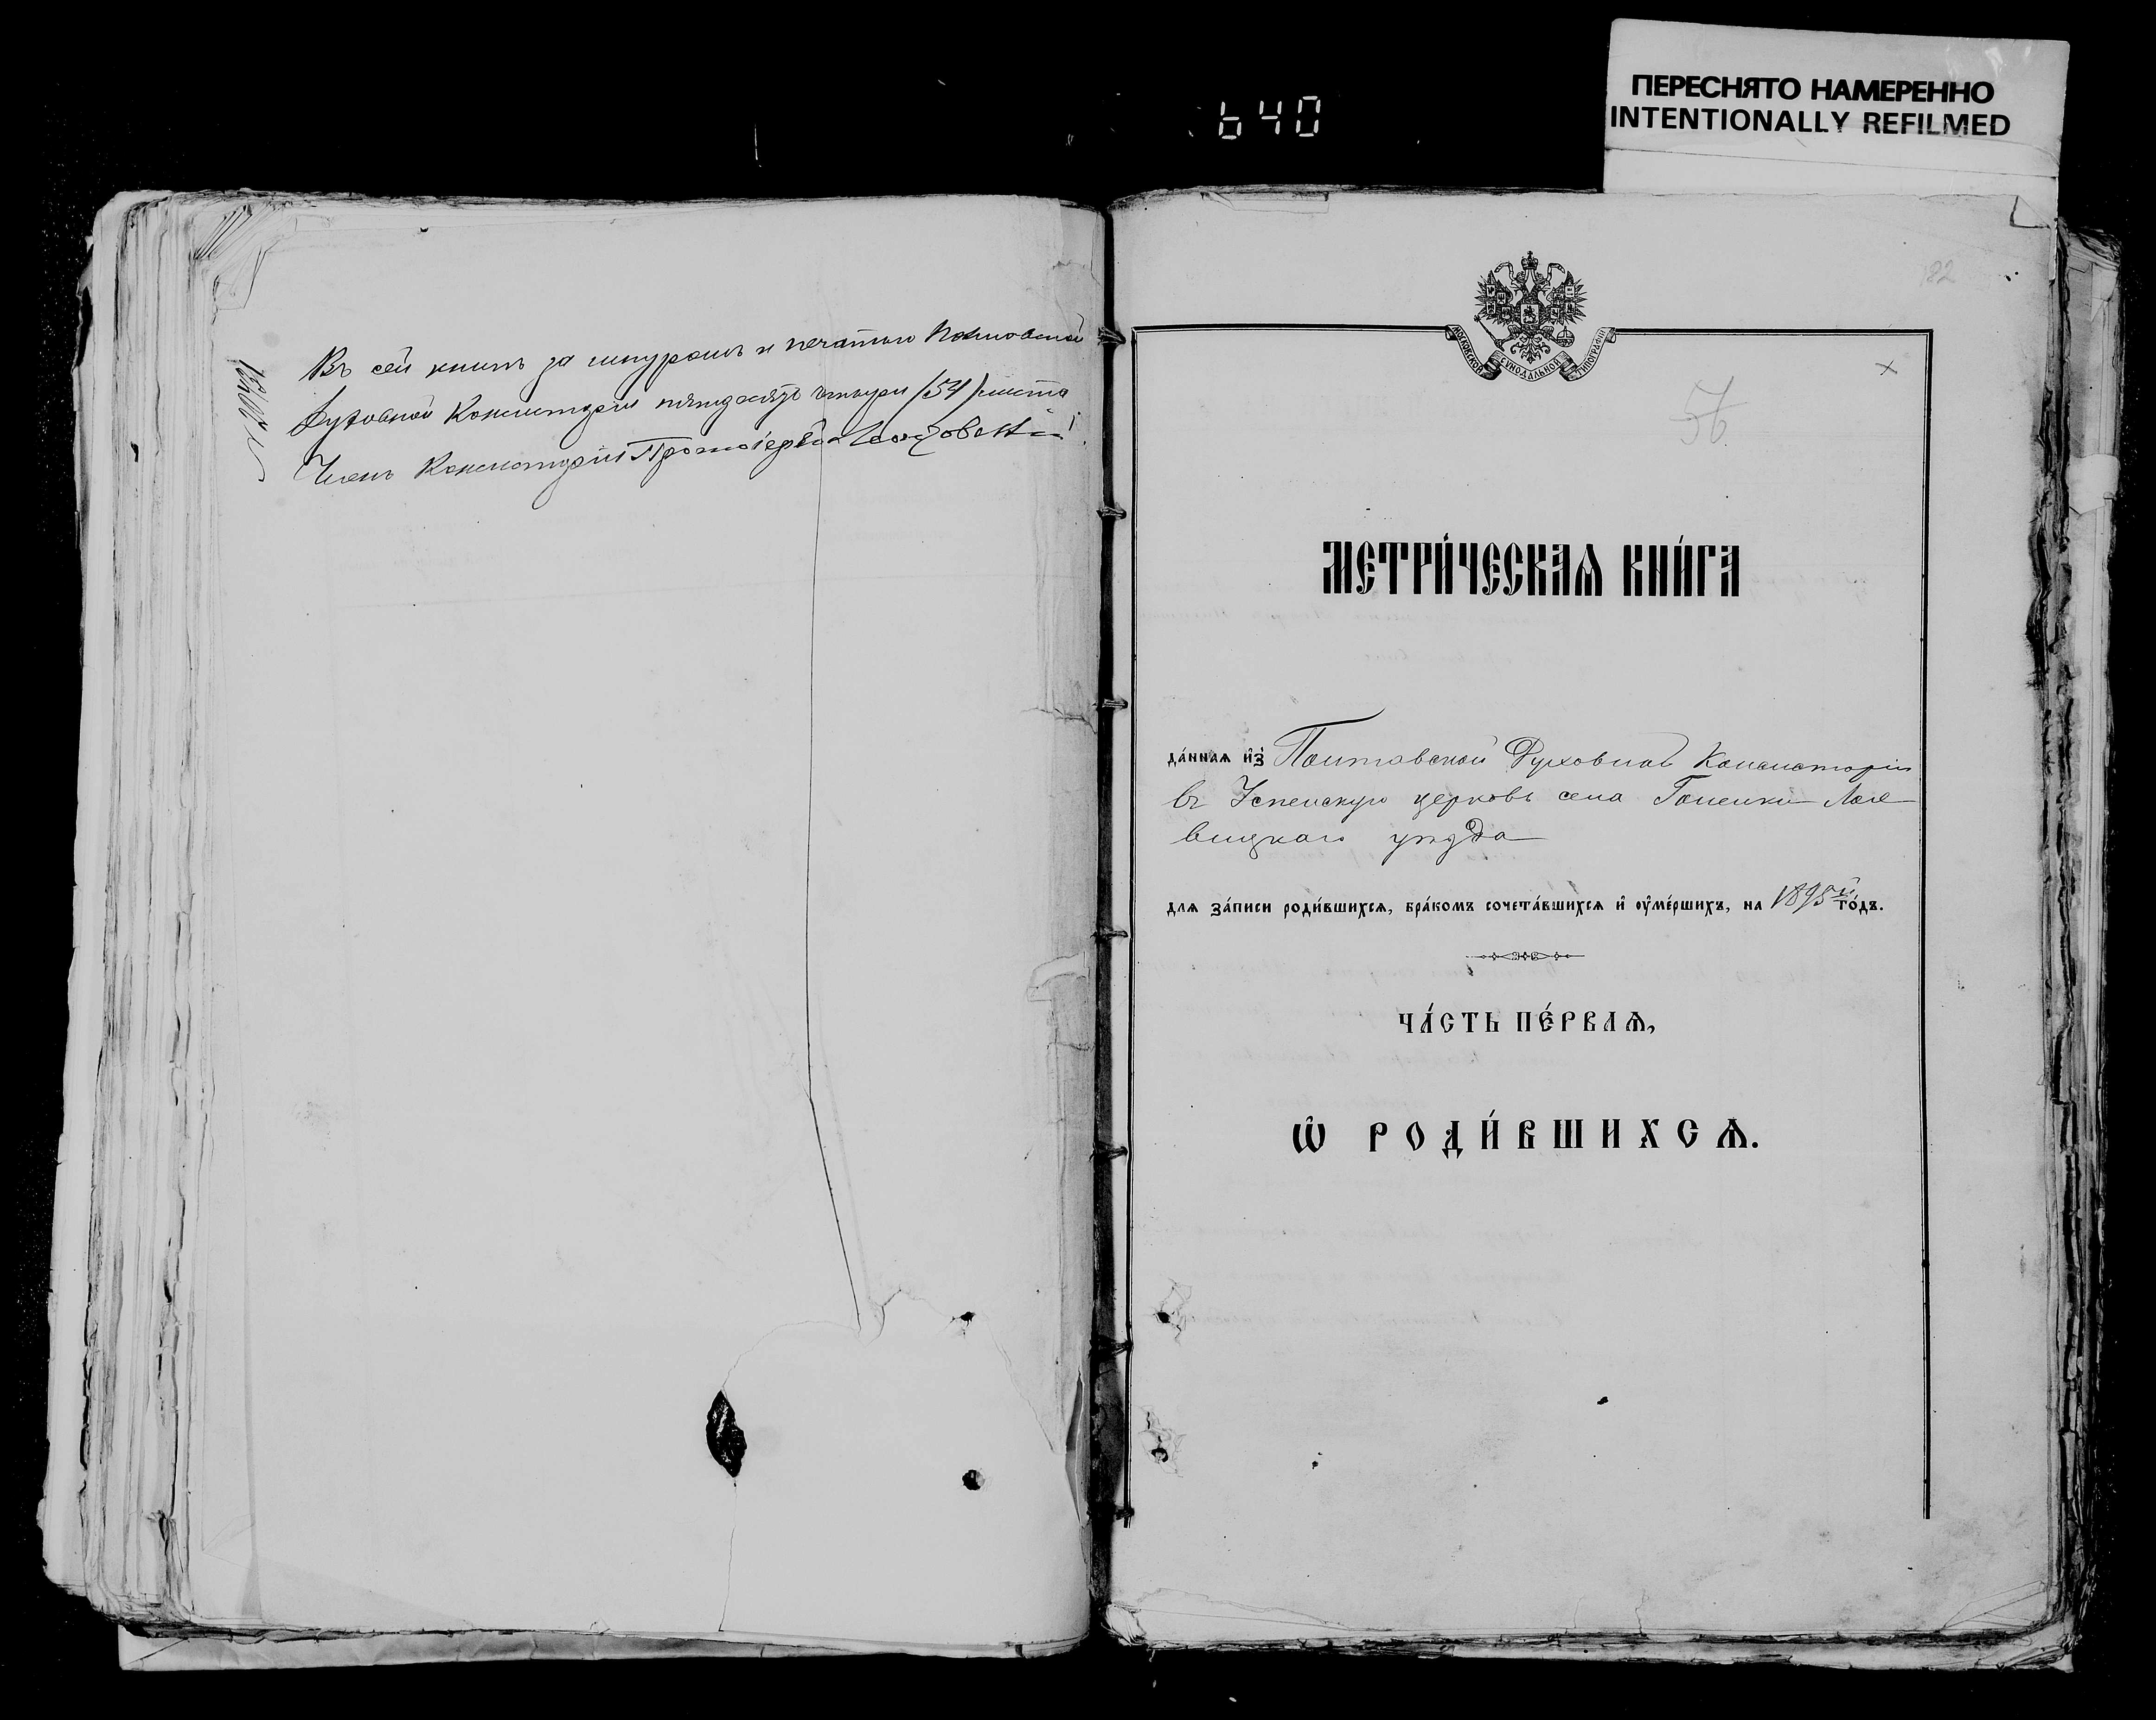 640
ПЕРЕСНЯТО НАМЕРЕННО
INTENTIONALLY REFILMED
Въ сей книгѣ за шнуромъ и печатью Полтавской
Духовной Консисторіи пятьдесятъ четыре (54) листа
Членъ Консисторіи Протоіерей
182
МОСКОВСКОЙ СѴНОДАЛЬНОЙ ТИПОГРАФІИ
×
56
МЕТРИ́ЧЕСКАѦ КНИ́ГА
да́ннаѧ и҆з̾ Полтавской Духовной Консисторіи
въ Успенскую церковь села ГапС
вицкаго уѣзда
длѧ за́писи роди́вшихсѧ, бра́комъ сочета́вшихсѧ и҆ ᲂу҆ме́ршихъ, на 1895й го́дъ.
ЧА́СТЬ ПЕ́РВАѦ,
Ѽ РОДИ́ВШИХСѦ.